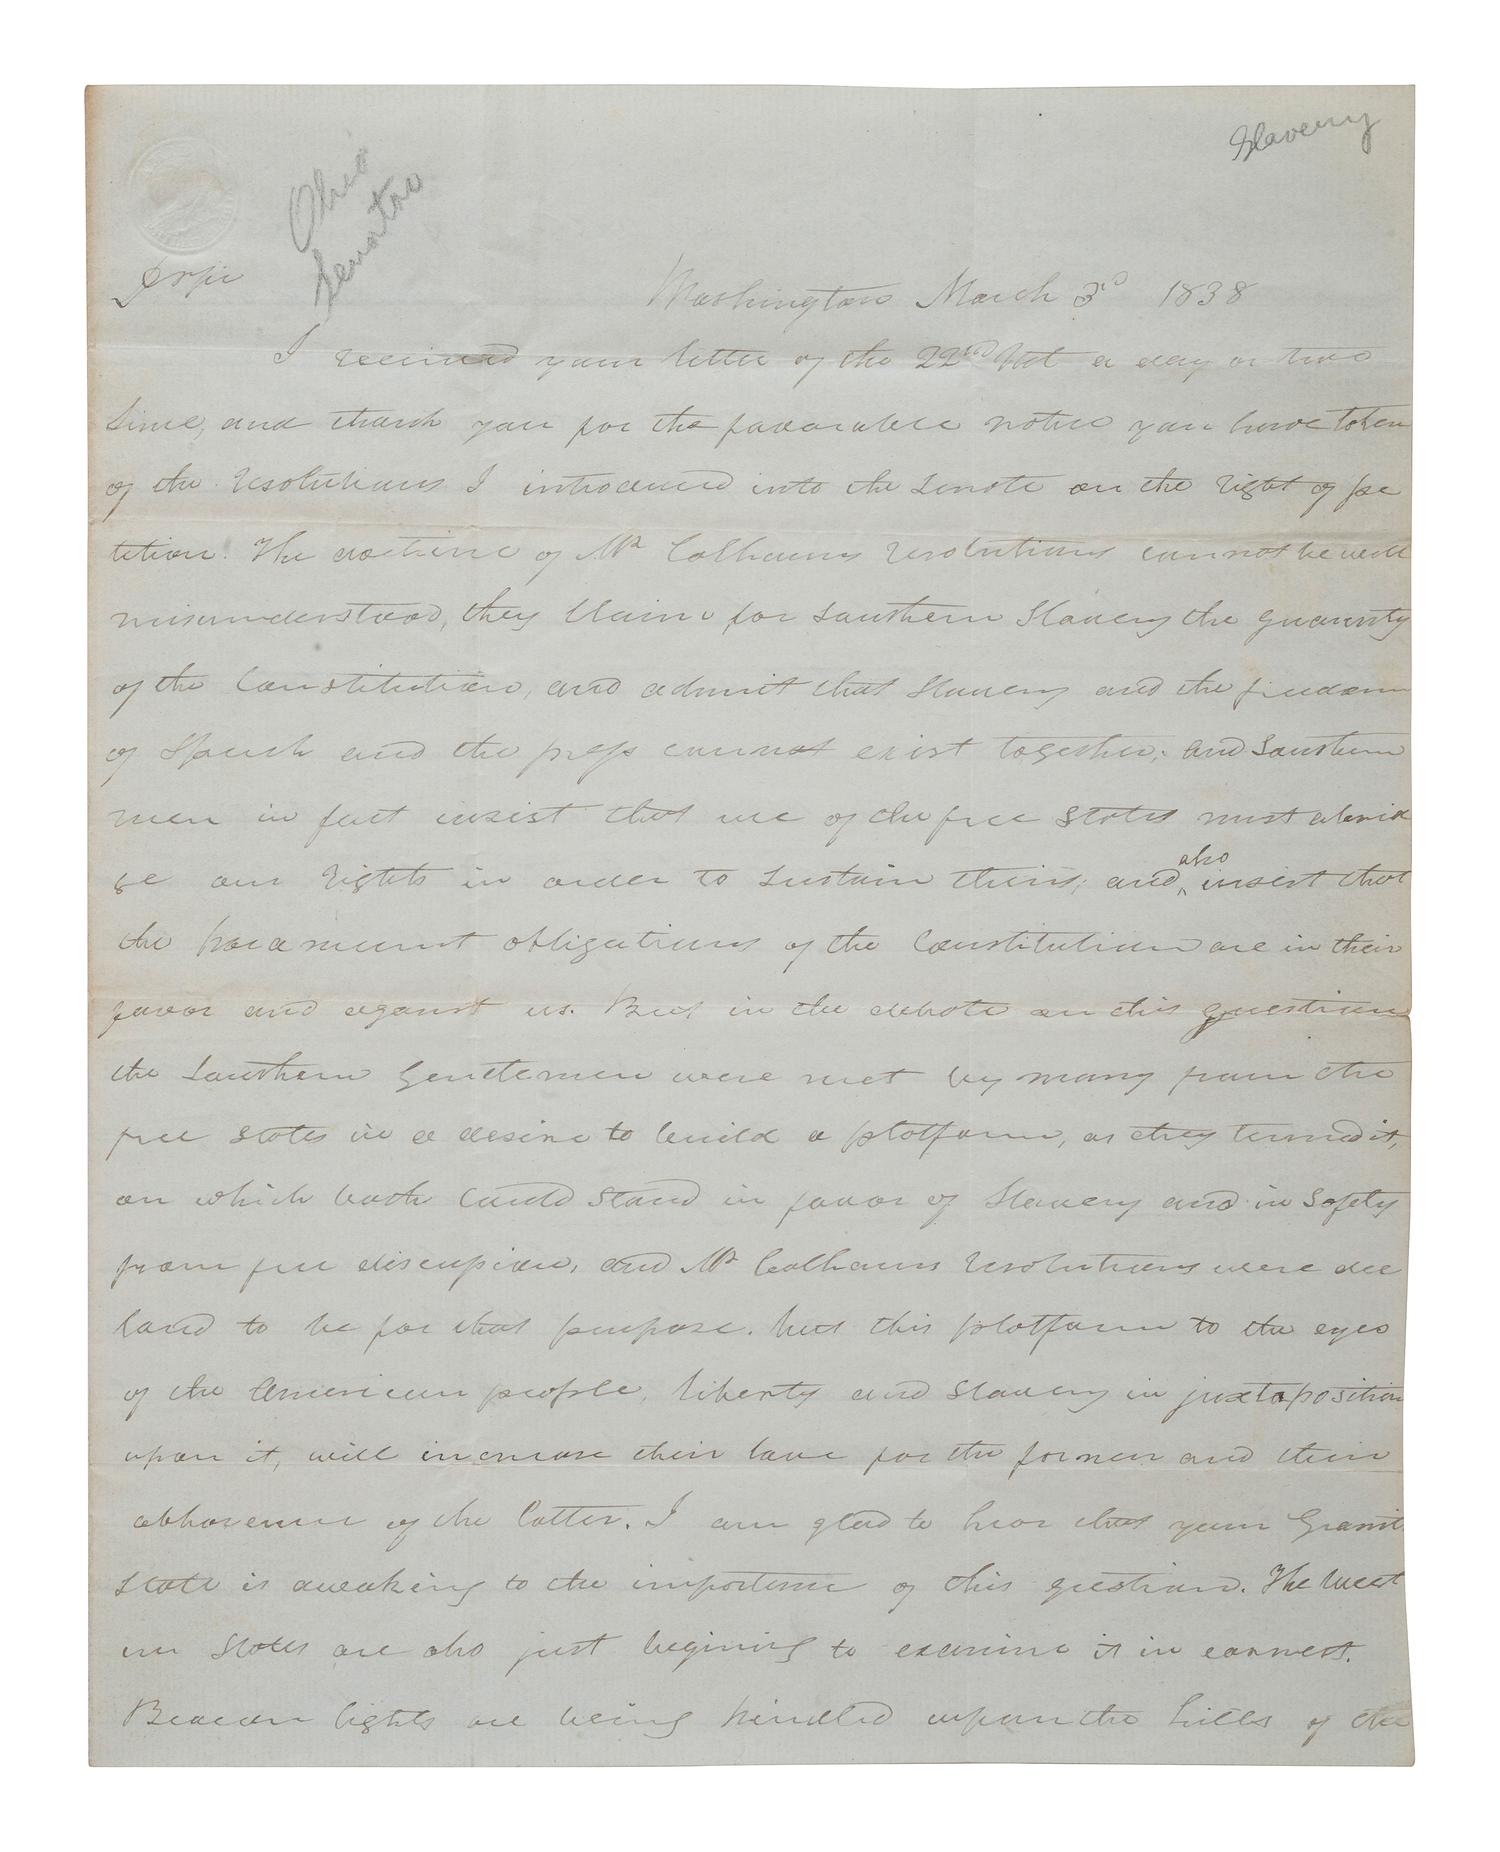 Slavery
Ohio
Senator
Washington March 3rd 1838
I received your letter of the 22nd Ult a day or two
since, and thank you for the favorable notice you have taken
of the resolutions I introduced into the Senate on the right of pe
tition. The doctrine of Mr Calhouns resolutions cannot be well
misunderstood, they claim for Southern Slavery the guaranty
of the Constitution, and admit that Slavery and the freedom
of Speech and the press cannot exist together; and Southern
men in fact insist that we of the free States must abrid
ge our rights in order to sustain theirs; and also insist that
the paramount obligations of the Constitution are in their
favor and against us. But in the debate on this question
the Southern Gentlemen were met by many from the
free States in a desire to build a platform, as they termed it,
on which both could stand in favor of Slavery and in safety
from free discussion, and Mr Calhouns resolutions were dec
lared to be for that purpose. but this platform to the eyes
of the American people, liberty and Slavery in juxtaposition
upon it, will increase their love for the former and their
abhorence of the latter. I am glad to hear that your Granit
State is awaking to the importance of this question. The West
ern States are also just begining to examine it in earnest.
Beacon lights are being kindled upon the hills of the